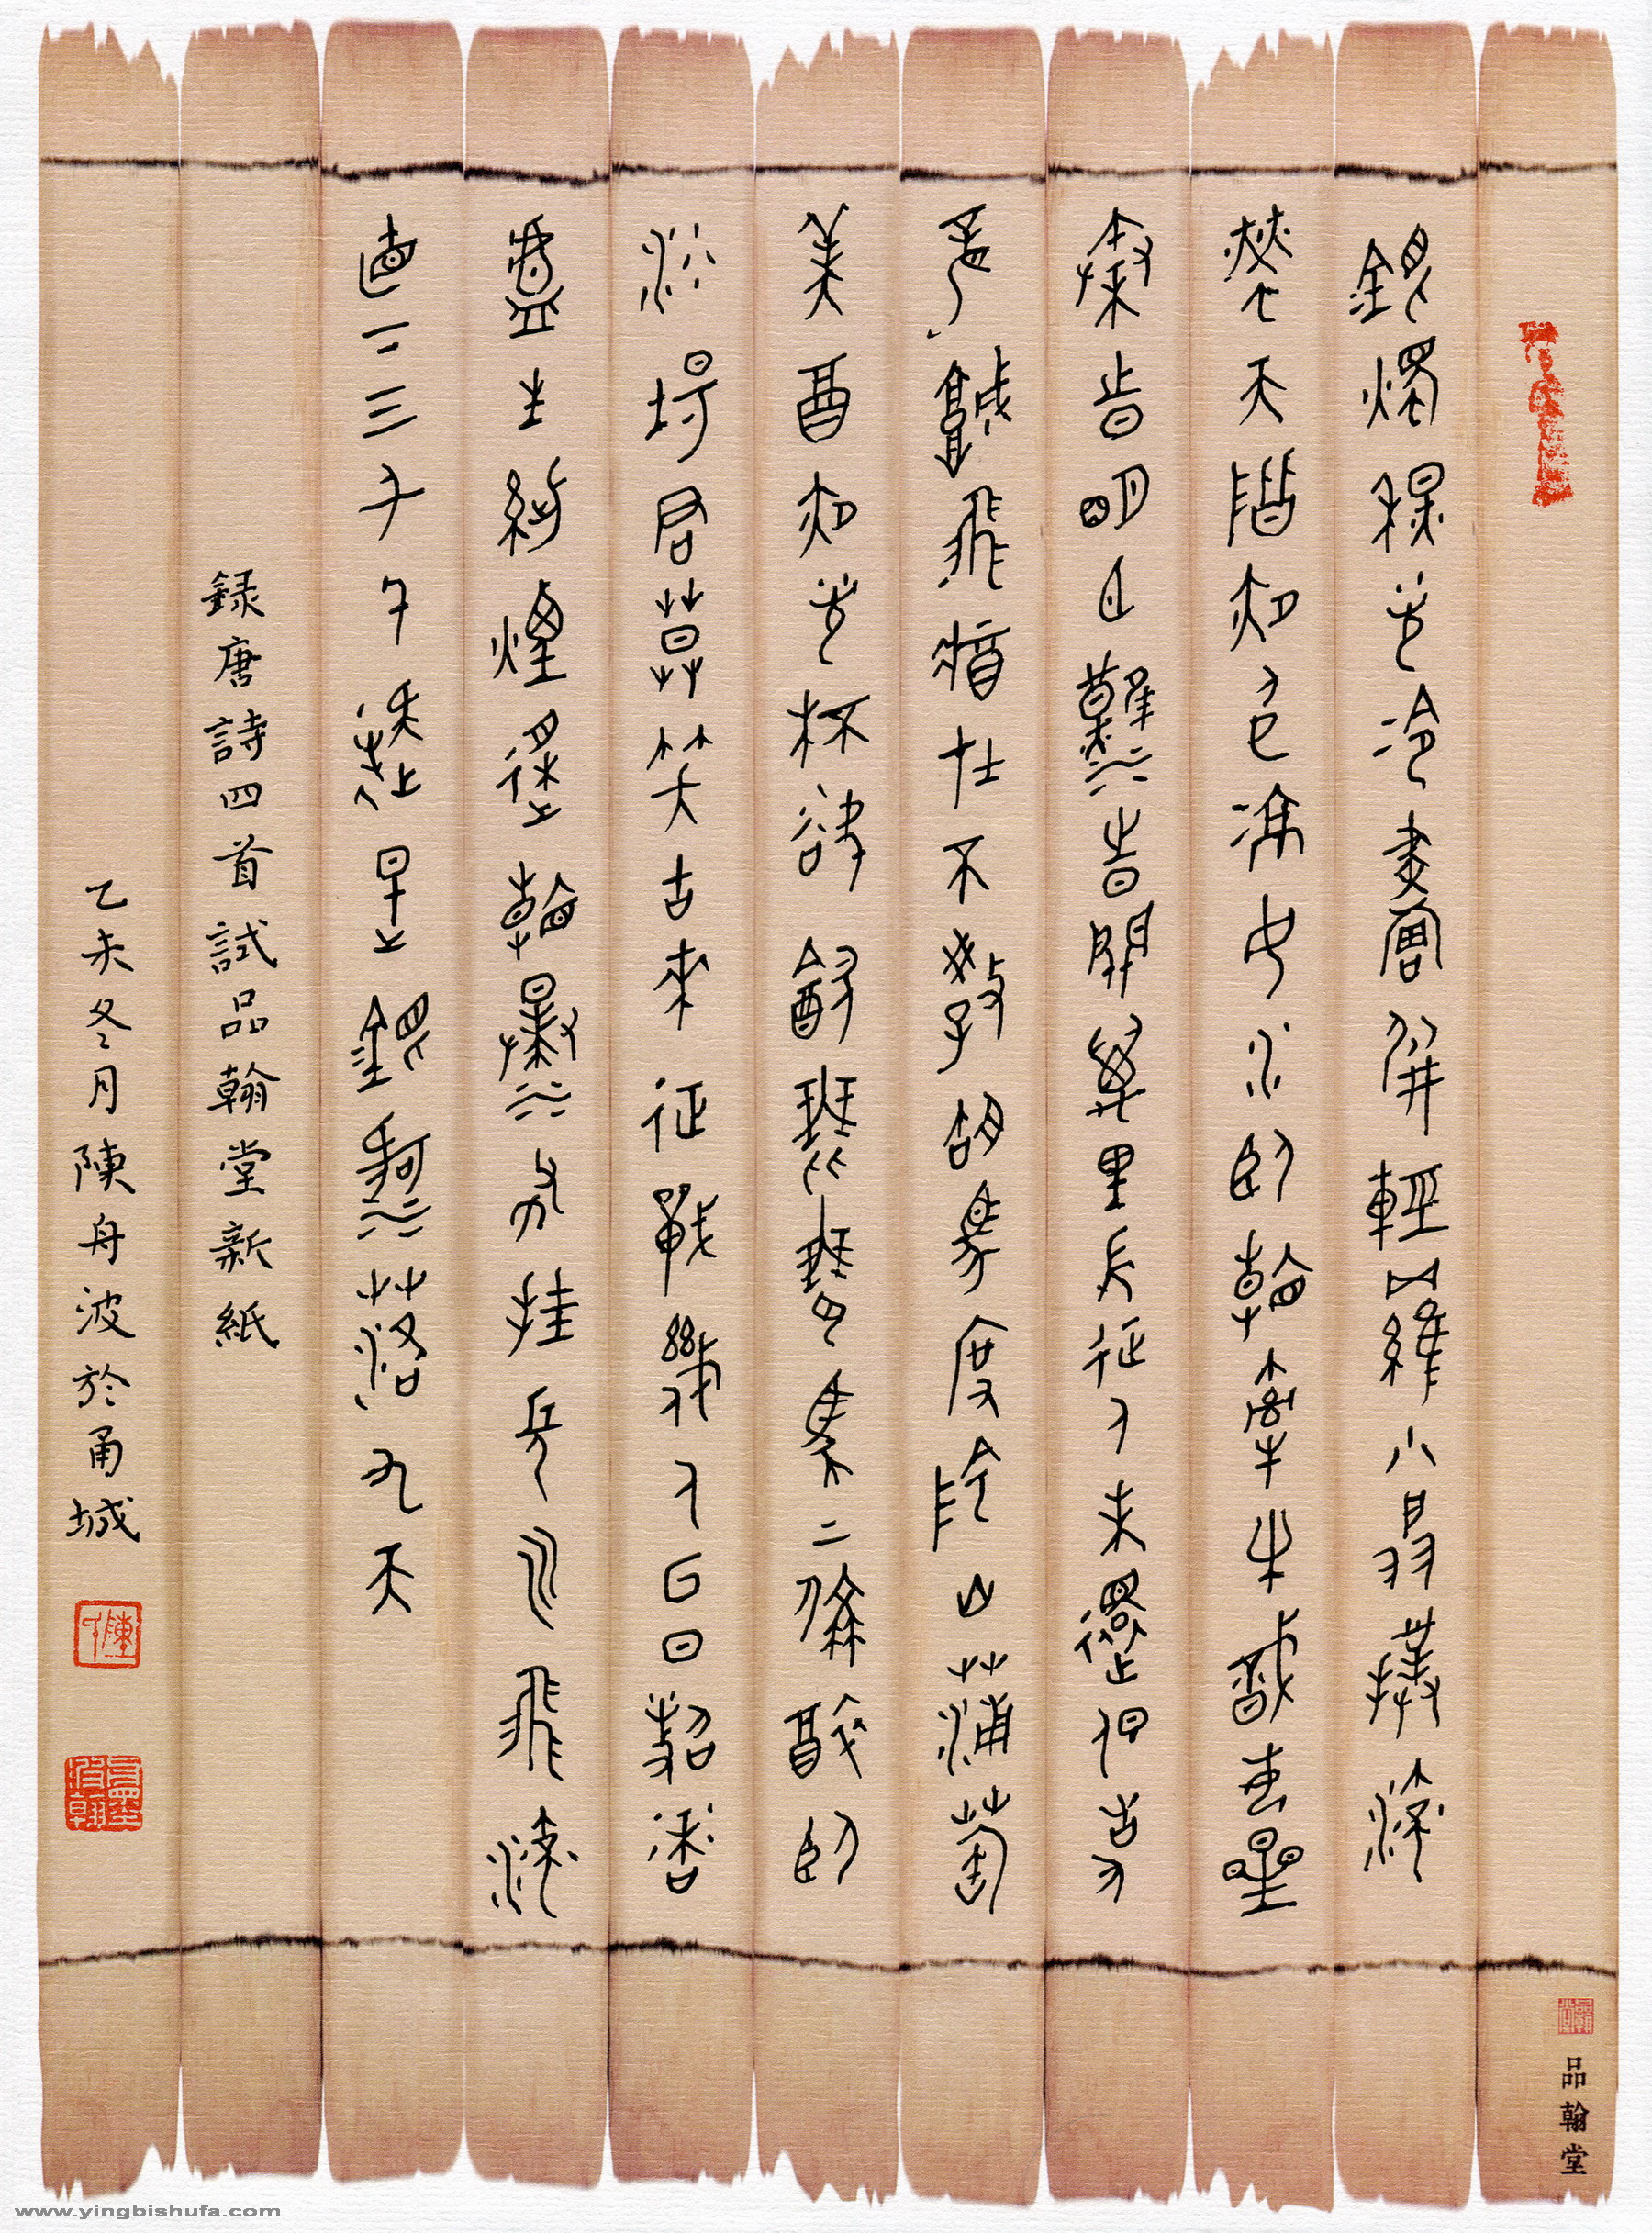 銀燭秋光冷畫屏輕羅小扇撲流
螢天階夜色涼如水臥看牽牛織女星
秦時明月漢時關萬里長征人未還但使
龍城飛將在不教胡馬度陰山葡萄
美酒夜光杯欲飲琵琶馬上催醉臥
沙場君莫笑古來征戰幾人回日照香
爐生紫煙遙看瀑布掛前川飛流
直下三千尺疑是銀河落九天
録唐詩四首試品翰堂新紙
乙未冬月陳舟波於甬城
品翰堂
www.yingbishufa.com